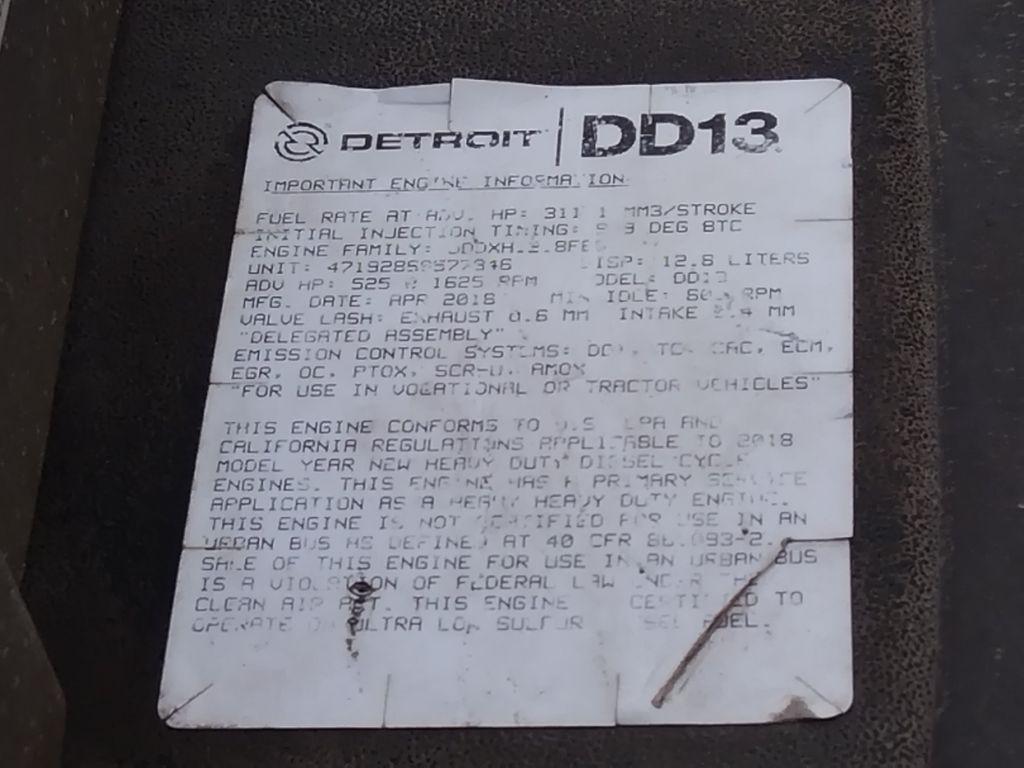 DETROIT | DD13
IMPORTANT ENGINE INFORMATION
FUEL RATE AT ADV. HP: MM3/STROKE
INITIAL INJECTION TIMING: DEG BTC
ENGINE FAMILY:
UNIT: DISP: 12.8 LITERS
ADV HP: 525 @ 1625 RPM MODEL: DD13
MFG. DATE: APR 2018 MIN IDLE: RPM
VALVE LASH: EXHAUST 0.6 MM INTAKE MM
"DELEGATED ASSEMBLY"
EMISSION CONTROL SYSTEMS: CAC, ECM,
EGR, OC, PTOX, SCR-U, AMOX
"FOR USE IN VOCATIONAL OR TRACTOR VEHICLES"
THIS ENGINE CONFORMS TO U.S. EPA AND
CALIFORNIA REGULATIONS APPLICABLE TO 2018
MODEL YEAR NEW HEAVY DUTY DIESEL CYCLE
ENGINES. THIS ENGINE HAS A PRIMARY SERVICE
APPLICATION AS A HEAVY HEAVY DUTY ENGINE.
THIS ENGINE IS NOT CERTIFIED FOR USE IN AN
URBAN BUS AS DEFINED AT 40 CFR 86.093-2.
SALE OF THIS ENGINE FOR USE IN AN URBAN BUS
IS A VIOLATION OF FEDERAL LAW UNDER THE
CLEAN AIR ACT. THIS ENGINE CERTIFIED TO
OPERATE ON ULTRA LOW SULFUR DIESEL FUEL.